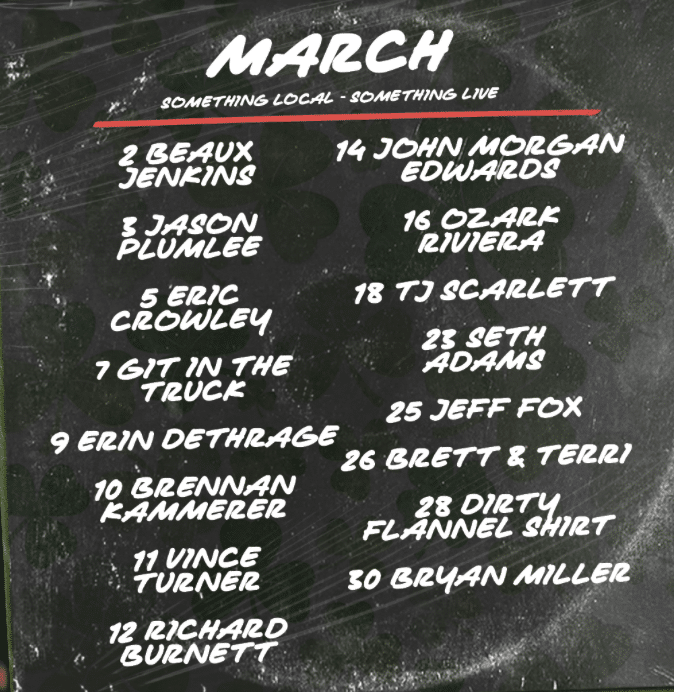 MARCH
SOMETHING LOCAL - SOMETHING LIVE
2 BEAUX
JENKINS
3 JASON
PLUMLEE
5 ERIC
CROWLEY
7 GIT IN THE
TRUCK
9 ERIN DETHRAGE
10 BRENNAN
KAMMERER
11 VINCE
TURNER
12 RICHARD
BURNETT
14 JOHN MORGAN
EDWARDS
16 OZARK
RIVIERA
18 TJ SCARLETT
23 SETH
ADAMS
25 JEFF FOX
26 BRETT & TERRI
28 DIRTY
FLANNEL SHIRT
30 BRYAN MILLER